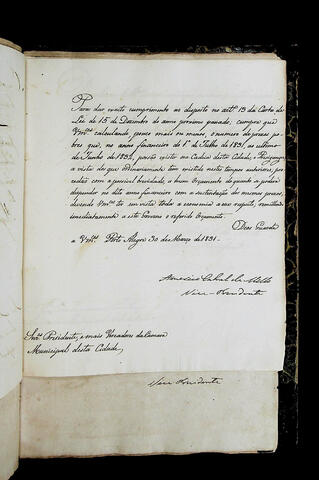 Para dar exacto cumprimento ao disposto no artº 13 da Carta de
Lei de 15 de Dezembro do anno proximo passado, cumpre que
Vmces calculando pouco mais ou menos, o numero de prezos po-
bres que, no anno financeiro de 1º de Julho de 1831, ao ultimo
de Junho de 1832, possão existir na Cadeia desta Cidade,
a vista dos que Ordinariamente tem existido nestes tempos anteriores, pro-
cedão com a possivel brevidade, a hum Orçamento do quanto se poderá
despender no dito anno financeiro com a sustentação dos mesmos prezos,
devendo Vmces ter em vista toda a economia a esse respeito, remettendo
immediatamente a este Governo o referido Orçamento.
Deos Guarde
a Vmces. Porto Alegre 30 de Março de 1831.
Americo Cabral de Mello
Vice-Prezidente
Snrs Prezidente, e mais Vereadores da Camara
Municipal desta Cidade.
Vice Prezidente